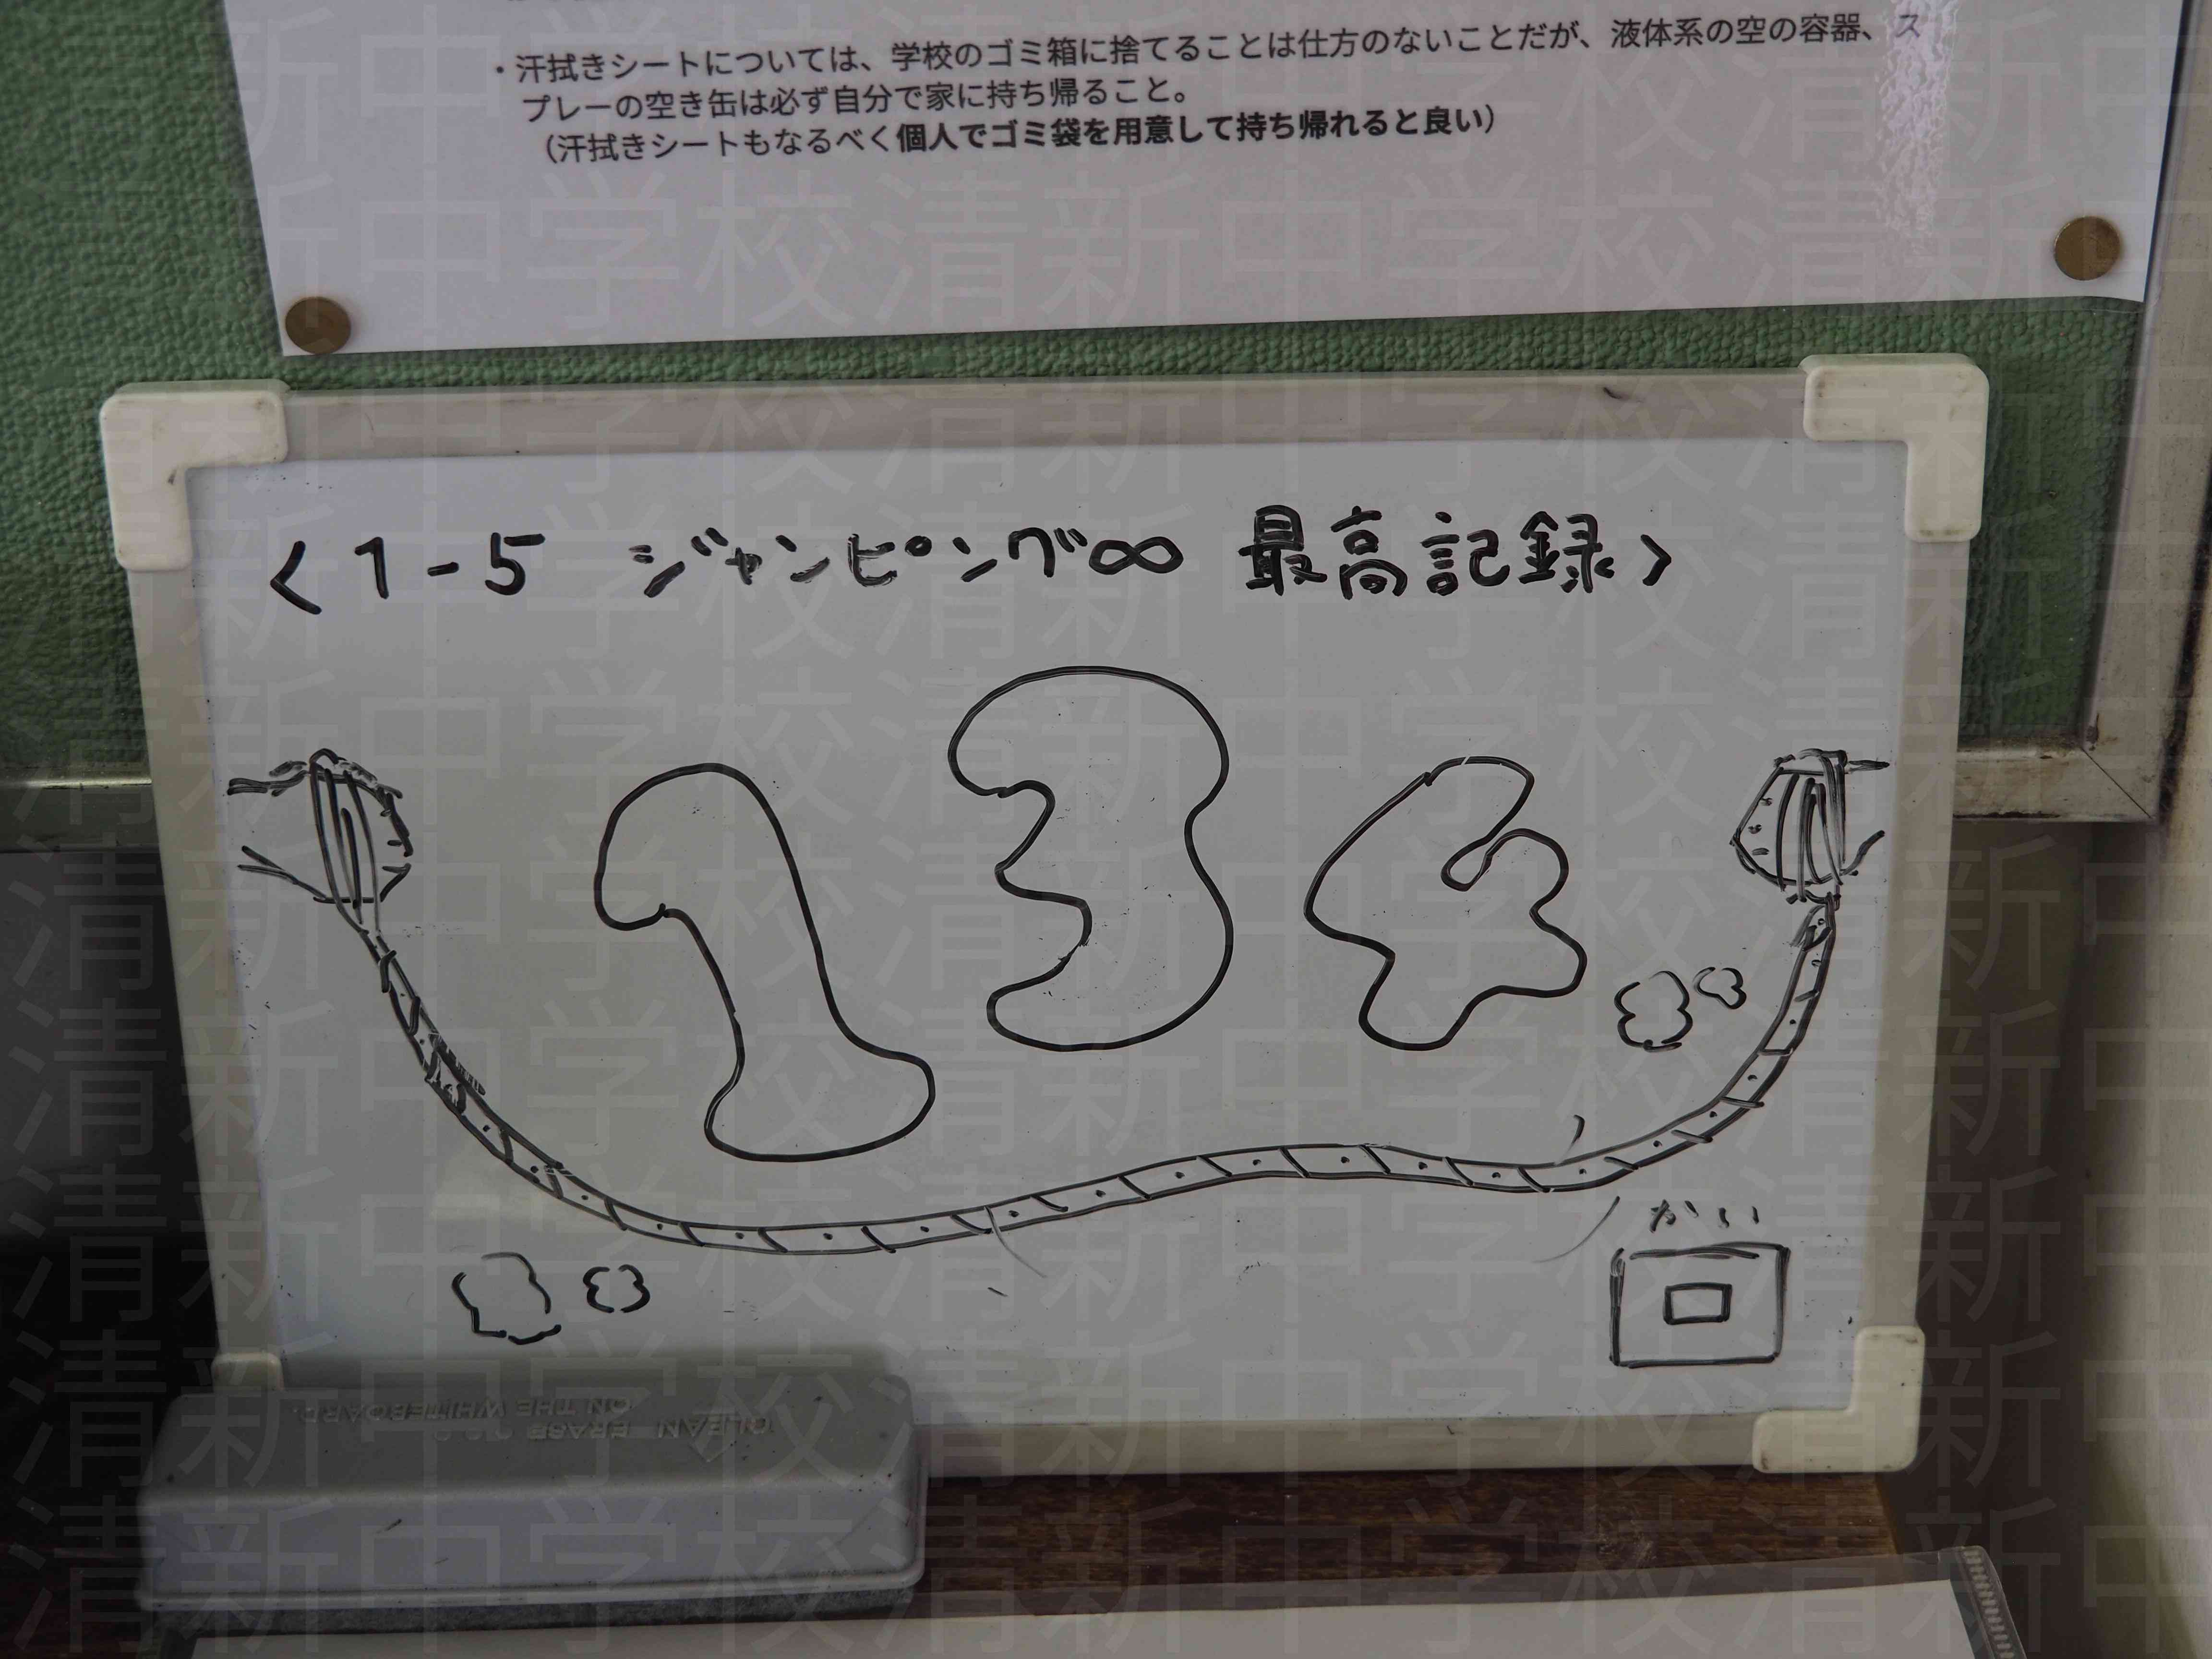 ・汗拭きシートについては、学校のゴミ箱に捨てることは仕方のないことだが、液体系の空の容器、ス
プレーの空き缶は必ず自分で家に持ち帰ること。
（汗拭きシートもなるべく個人でゴミ袋を用意して持ち帰れると良い）
<1-5 ジャンピング∞ 最高記録>
134
かい
回
CLEAN ERASE
ON THE WHITEBOARD
清新中学校